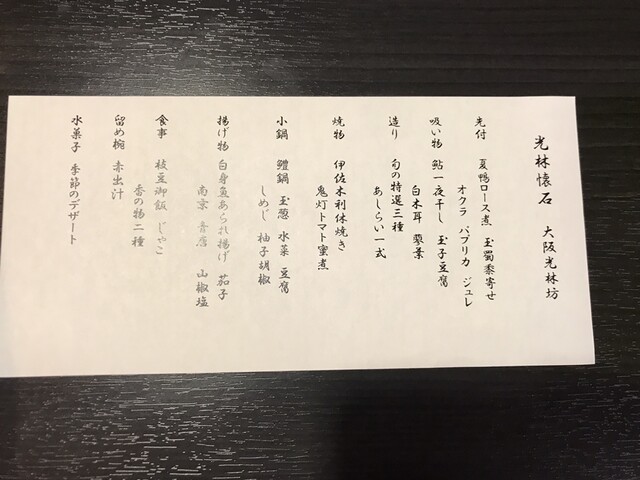 光林懐石　大阪光林坊
先付　夏鴨ロース煮　玉蜀黍寄せ
オクラ　パプリカ　ジュレ
吸い物　鮎一夜干し　玉子豆腐
白木耳　蓼葉
造り　旬の特選三種
あしらい一式
焼物　伊佐木利休焼き
鬼灯トマト蜜煮
小鍋　鱧鍋　玉葱　水菜　豆腐
しめじ　柚子胡椒
揚げ物　白身魚あられ揚げ　茄子
南京　青唐　山椒塩
食事　枝豆御飯　じゃこ
香の物二種
留め椀　赤出汁
水菓子　季節のデザート